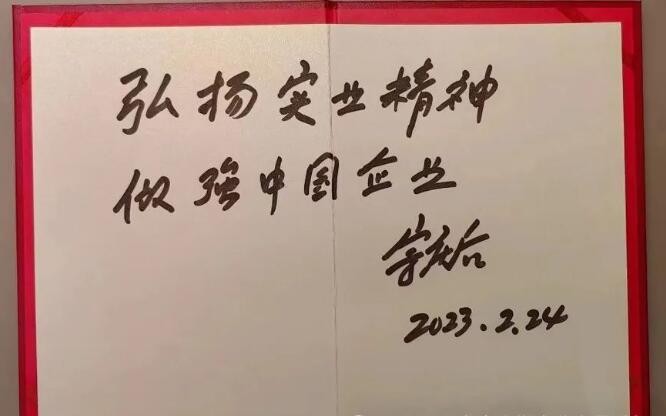 弘扬实业精神
做強中国企业
宗庆后
2023.2.24